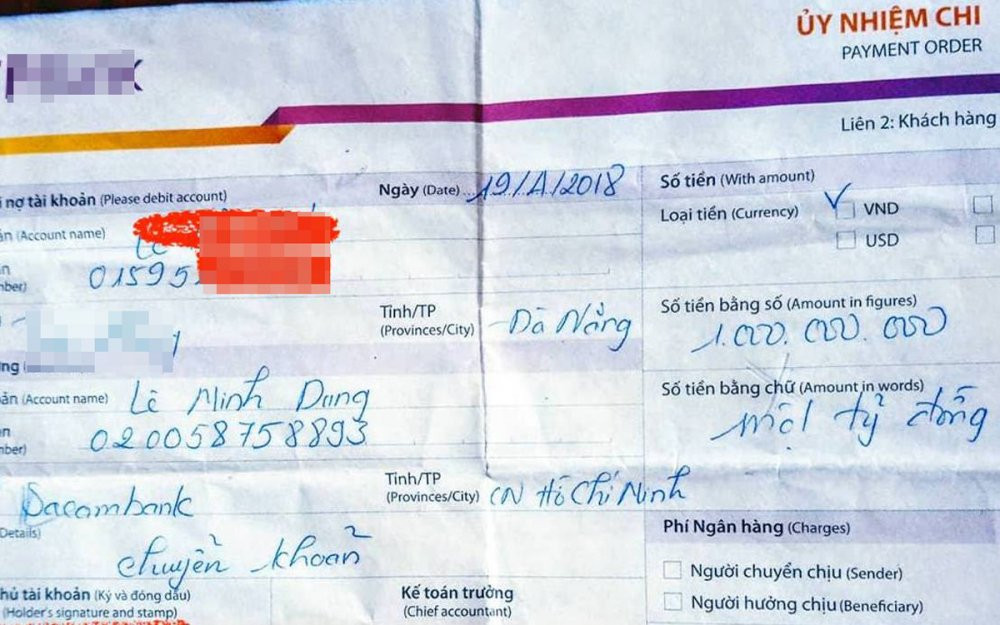 ỦY NHIỆM CHI
PAYMENT ORDER
Liên 2: Khách hàng
nợ tài khoản (Please debit account)
Ngày (Date) 19/4/2018
Số tiền (With amount)
(Account name) Lê
Loại tiền (Currency) VND
USD
01595
Tỉnh/TP
(Provinces/City) Đà Nẵng
Số tiền bằng số (Amount in figures)
1.000.000.000
(Account name) Lê Minh Dung
Số tiền bằng chữ (Amount in words)
một tỷ đồng
020058758893
Tỉnh/TP
(Provinces/City) CN Hồ Chí Minh
Sacombank
Details)
chuyển khoản
Phí Ngân hàng (Charges)
Người chuyển chịu (Sender)
Người hưởng chịu (Beneficiary)
hủ tài khoản (Ký và đóng dấu)
(Holder's signature and stamp)
Kế toán trưởng
(Chief accountant)